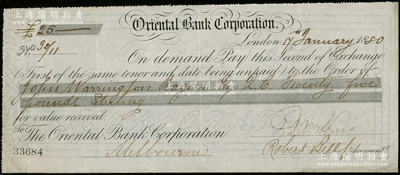 上海陽明拍賣
Oriental Bank Corporation.
£ 25
London 17th January 1880
No 30/11
On demand Pay this Second of Exchange
First of the same tenor and date being unpaid to the Order of
John Warrington
Twenty five
pounds Sterling
for value received.
To The Oriental Bank Corporation
Melbourne
33684
Robert Account